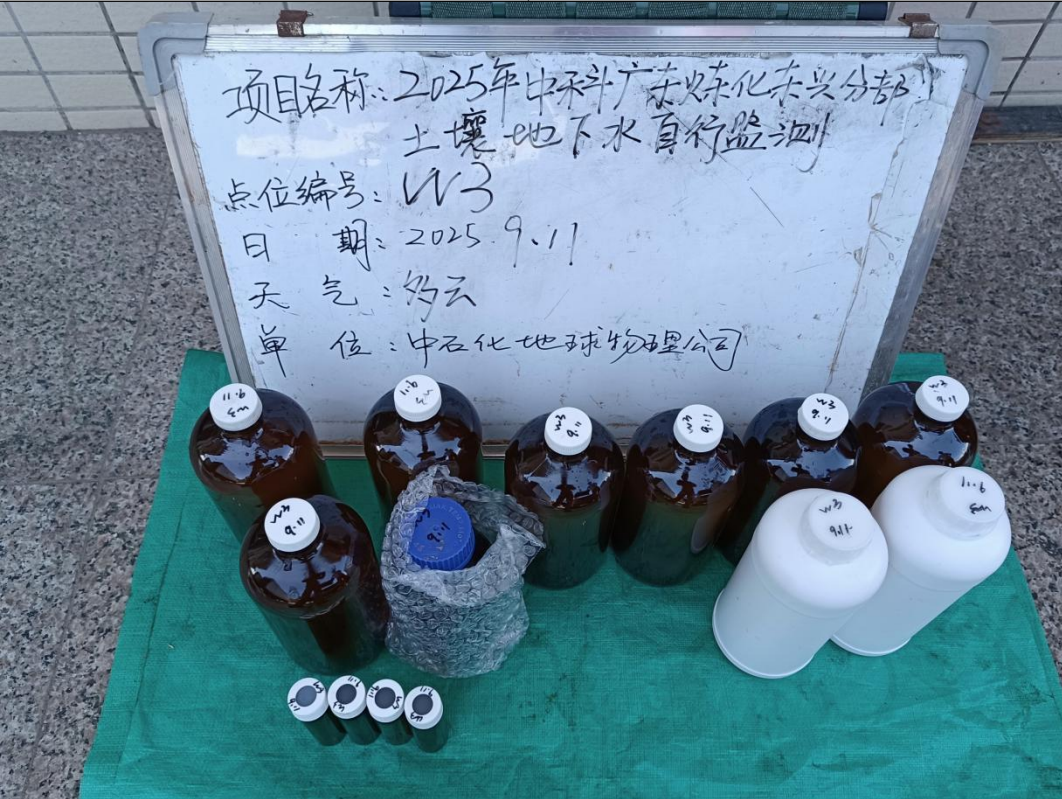 项目名称:2025年中科广东炼化东兴分部
土壤地下水自行监测
点位编号:W3
日 期:2025.9.11
天 气:多云
单 位:中石化地球物理公司
W3 9.11
W3 9.11
W3 9.11
W3 9.11
W3 9.11
W3 9.11
W3 9.11
9.11
W3 9.11
W3 9.11
W3 9.11
W3 9.11
W3 9.11
W3 9.11